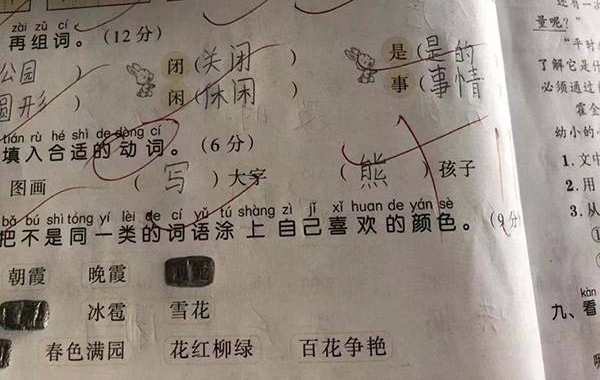 zài zǔ cí
再组词。(12分)
公园) 闭(关闭) 是(是的
圆形) 闲(休闲) 事(事情
tián rù hé shì de dòng cí
填入合适的动词。(6分)
图画 (写)大字 (熊)孩子
bǎ bú shì tóng yí lèi de cí yǔ tú shàng zì jǐ xǐ huan de yán sè
把不是同一类的词语涂上自己喜欢的颜色。(9分)
朝霞 晚霞
冰雹 雪花
春色满园 花红柳绿 百花争艳
量呢?”
“平时
了解它是什
必须通过
霍金
幼小的
1.文中
2.用
3.从
kàn
九、看